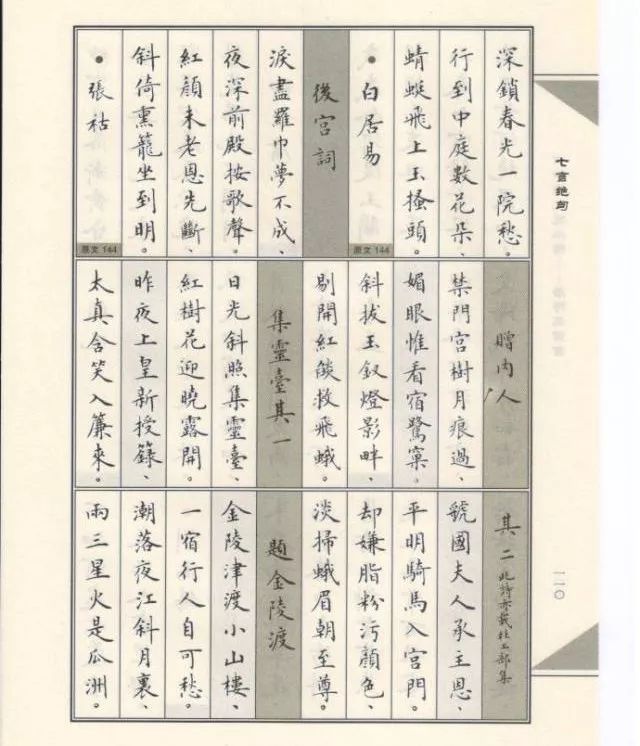 深鎖春光一院愁。
行到中庭數花朵、
蜻蜓飛上玉搔頭。
•白居易
原文 144
後宮詞
淚盡羅巾夢不成、
夜深前殿按歌聲。
紅顏未老恩先斷、
斜倚熏籠坐到明。
•張祜
原文 144
贈內人
禁門宮樹月痕過、
媚眼惟看宿鷺窠。
斜拔玉釵燈影畔、
剔開紅燄救飛蛾。
集靈臺其一
日光斜照集靈臺、
紅樹花迎曉露開。
昨夜上皇新授籙、
太真含笑入簾來。
其二此詩亦載杜工部集
虢國夫人承主恩、
平明騎馬入宮門。
却嫌脂粉污顏色、
淡掃蛾眉朝至尊。
題金陵渡
金陵津渡小山樓、
一宿行人自可愁。
潮落夜江斜月裏、
兩三星火是瓜洲。
七言绝句
一一〇